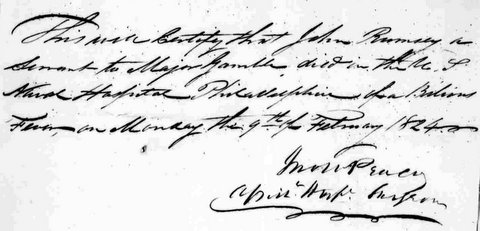 This will Certify that John Rumsey a
Servant to Major Gamble, died in the U. S
Naval Hospital Philadelphia of a Bilious
Fever on Monday the 9th of February 1824